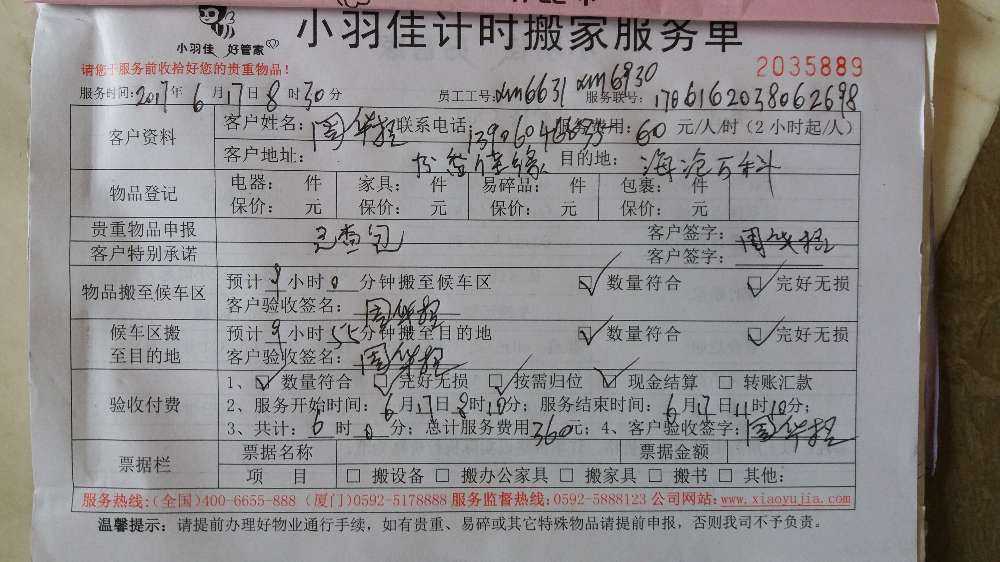 小羽佳 好管家
小羽佳计时搬家服务单
请您于服务前收拾好您的贵重物品！
2035889
服务时间：2017年6月17日8时30分 员工工号：xm6631 xm6930 服务联号：1706162038062698
客户资料
客户姓名：周华 联系电话： 服务费用：60元/人/时（2小时起/人）
客户地址： 目的地：海沧万科
物品登记
电器： 件 家具： 件 易碎品： 件 包裹： 件
保价： 元 保价： 元 保价： 元 保价： 元
贵重物品申报 已查包 客户签字：周华
客户特别承诺 客户签字：
物品搬至候车区
预计9小时0分钟搬至候车区 数量符合 完好无损
客户验收签名：周华
候车区搬至目的地
预计9小时55分钟搬至目的地 数量符合 完好无损
客户验收签名：周华
验收付费
1、 数量符合 完好无损 按需归位 现金结算 转账汇款
2、服务开始时间：6月17日8时10分；服务结束时间：6月17日11时10分；
3、共计：6时0分；总计服务费用360元；4、客户验收签字：周华
票据栏
票据名称 票据金额
项 目 搬设备 搬办公家具 搬家具 搬书 其他：
服务热线：（全国）400-6655-888（厦门）0592-5178888 服务监督热线：0592-5888123 公司网站：www.xiaoyujia.com
温馨提示：请提前办理好物业通行手续，如有贵重、易碎或其它特殊物品请提前申报，否则我司不予负责。